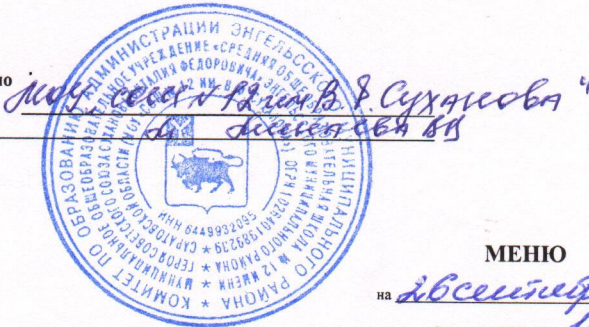 но
МОУ СОШ №12 им В. Ф. Суханова"
КОМИТЕТ ПО ОБРАЗОВАНИЮ АДМИНИСТРАЦИИ ЭНГЕЛЬССКОГО МУНИЦИПАЛЬНОГО РАЙОНА *
МУНИЦИПАЛЬНОЕ ОБЩЕОБРАЗОВАТЕЛЬНОЕ УЧРЕЖДЕНИЕ «СРЕДНЯЯ ОБЩЕОБРАЗОВАТЕЛЬНАЯ ШКОЛА № 12 ИМЕНИ
ГЕРОЯ СОВЕТСКОГО СОЮЗА
ФЕДОРОВИЧА» ЭНГЕЛЬССКОГО МУНИЦИПАЛЬНОГО РАЙОНА *
САРАТОВСКОЙ ОБЛАСТИ
ИНН 6449932095
МЕНЮ
на 26 сентяб